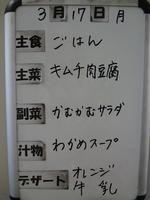 3月17日 月
主食 ごはん
主菜 キムチ肉豆腐
副菜 かむかむサラダ
汁物 わかめスープ
デザート オレンジ
牛乳